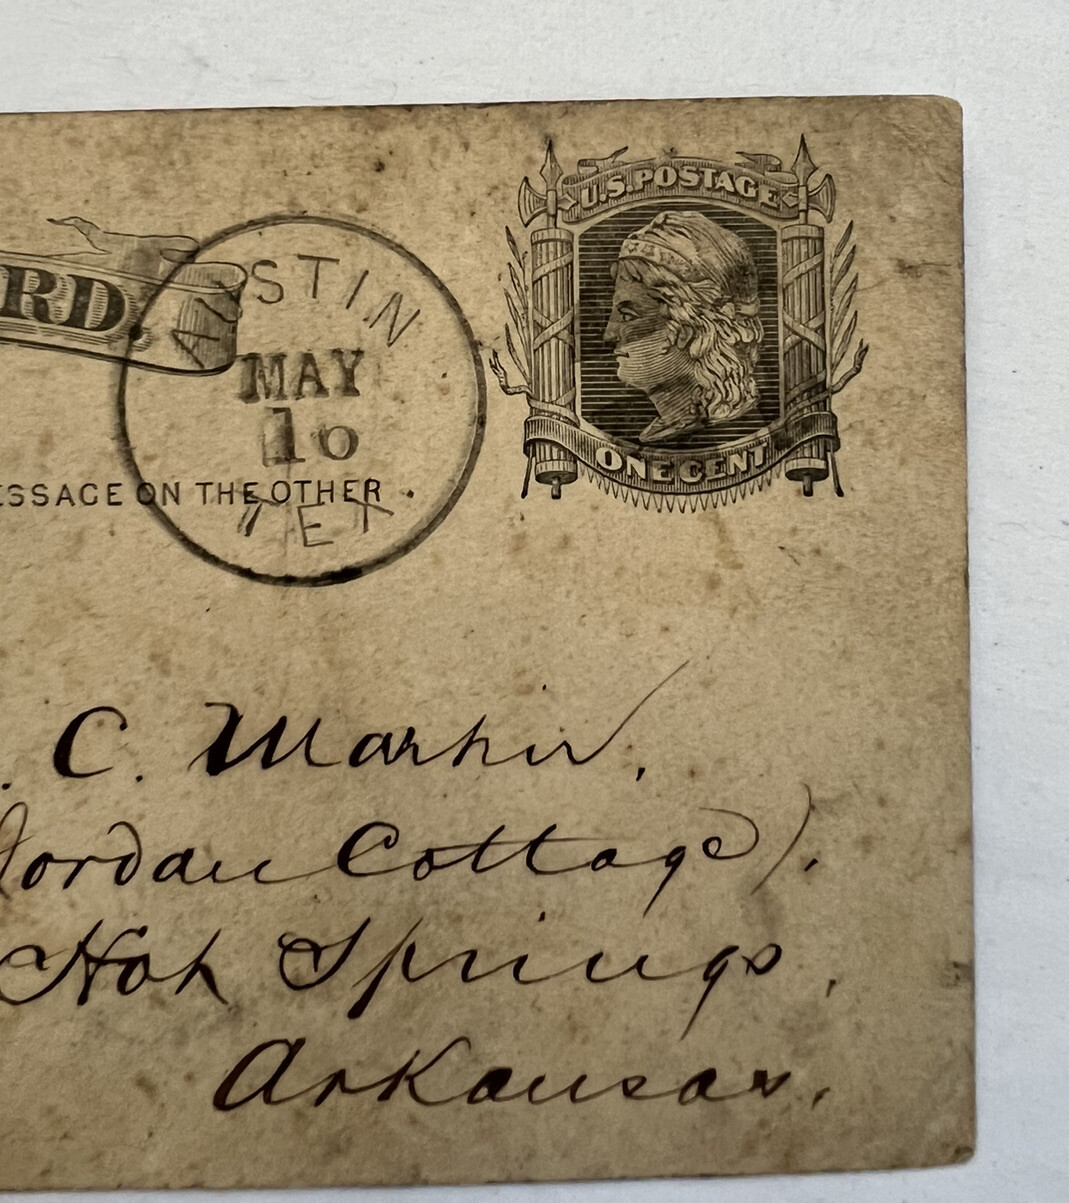 U.S. POSTAGE
RD.
AUSTIN
MAY
10
TEX
ONE CENT
ESSAGE ON THE OTHER
. C. Martin,
Jordan Cottage).
Hot Springs,
Arkansas.